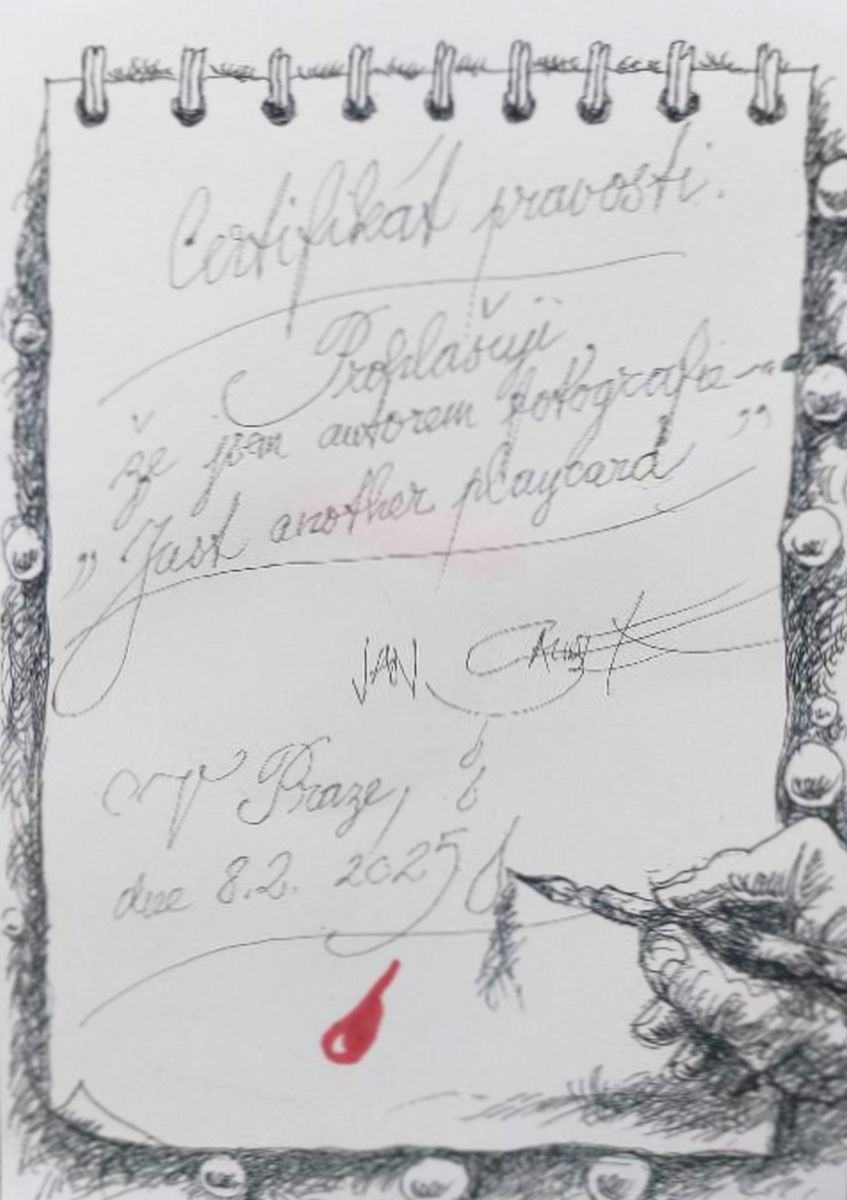 Certifikát pravosti.
Prohlašuji,
že jsem autorem fotografie
„Just another playcard”
JAN
V Praze,
dne 8.2. 2025